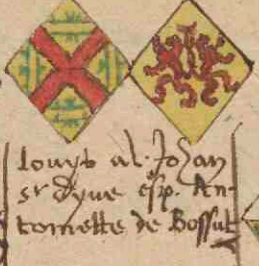 louys al. Johan
sr dyve esp. An-
tonnette de Bossut